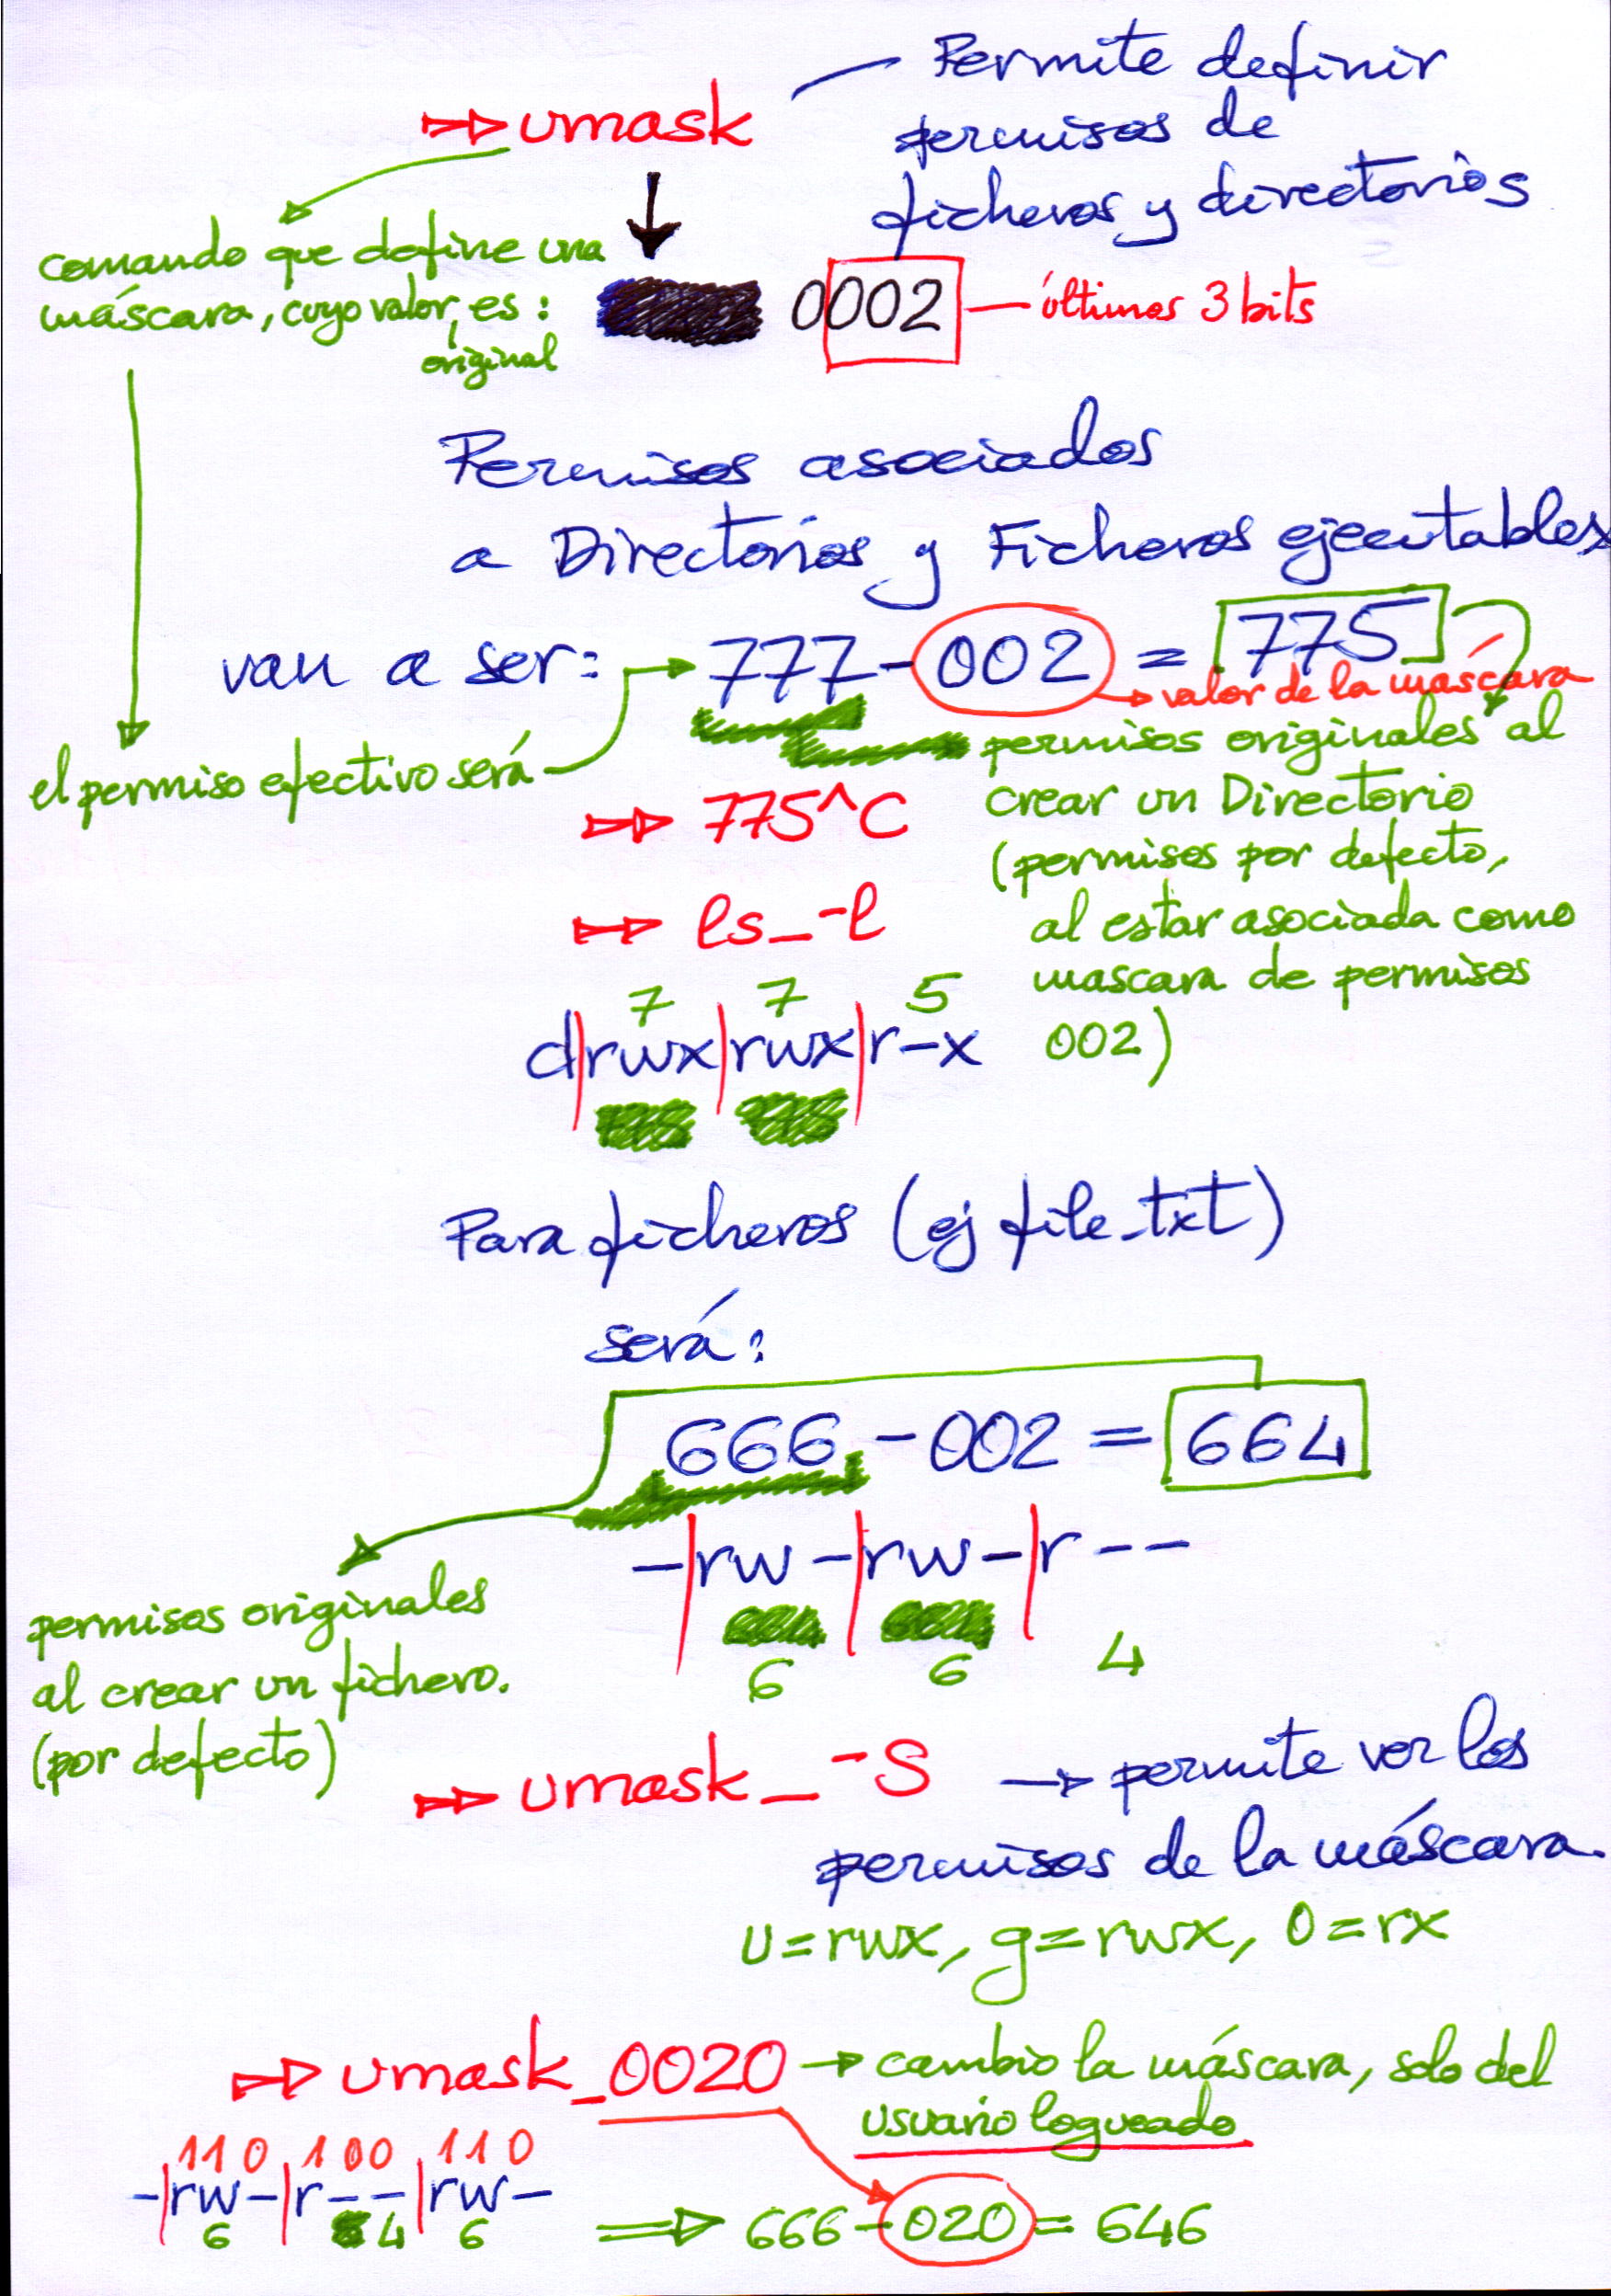 umask
Permite definir
permisos de
ficheros y directorios
comando que define una
máscara, cuyo valor, es:
original
0002
últimos 3 bits
Permisos asociados
a Directorios y Ficheros ejecutables
van a ser: 777-002 = 775
valor de la máscara
el permiso efectivo será
permisos originales al
crear un Directorio
(permisos por defecto,
al estar asociada como
mascara de permisos
002)
775^C
ls_-l
7 7 5
d|rwx|rwx|r-x
Para ficheros (ej file_txt)
será:
666-002 = 664
-|rw-|rw-|r--
6 6 4
permisos originales
al crear un fichero.
(por defecto)
umask_-S → permite ver los
permisos de la máscara.
U=rwx, g=rwx, O=rx
umask_0020 → cambio la máscara, solo del
usuario logueado
110 100 110
-|rw-|r--|rw-
6 4 6
⇒ 666-020 = 646